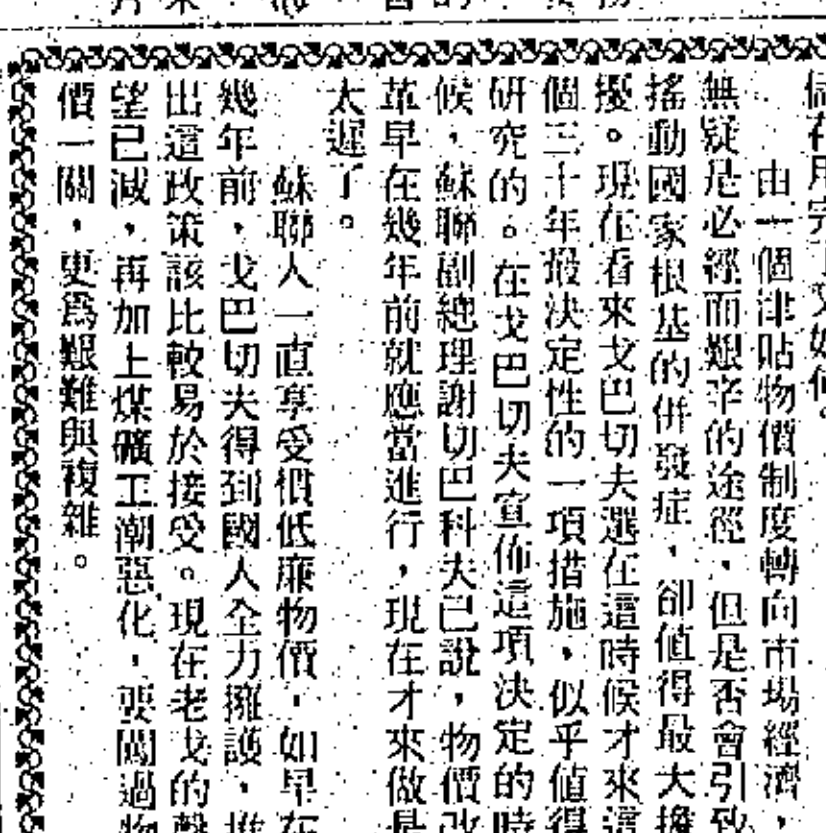 由一個津貼物價制度轉向市場經濟，
無疑是必經而艱辛的途徑，但是否會引致
搖動國家根基的併發症，卻值得最大擔
擾。現在看來戈巴切夫選在這時候才來這
個三十年最決定性的一項措施，似乎值得
研究的。在戈巴切夫宣佈這項決定的時
候，蘇聯副總理謝切巴科夫已說，物價改
革早在幾年前就應當進行，現在才來做是
太遲了。
蘇聯人一直享受慣低廉物價，如早在
幾年前，戈巴切夫得到國人全力擁護，推
出這政策該比較易於接受。現在老戈的聲
望已減，再加上煤礦工潮惡化，要闖過物
價一關，更為艱難與複雜。